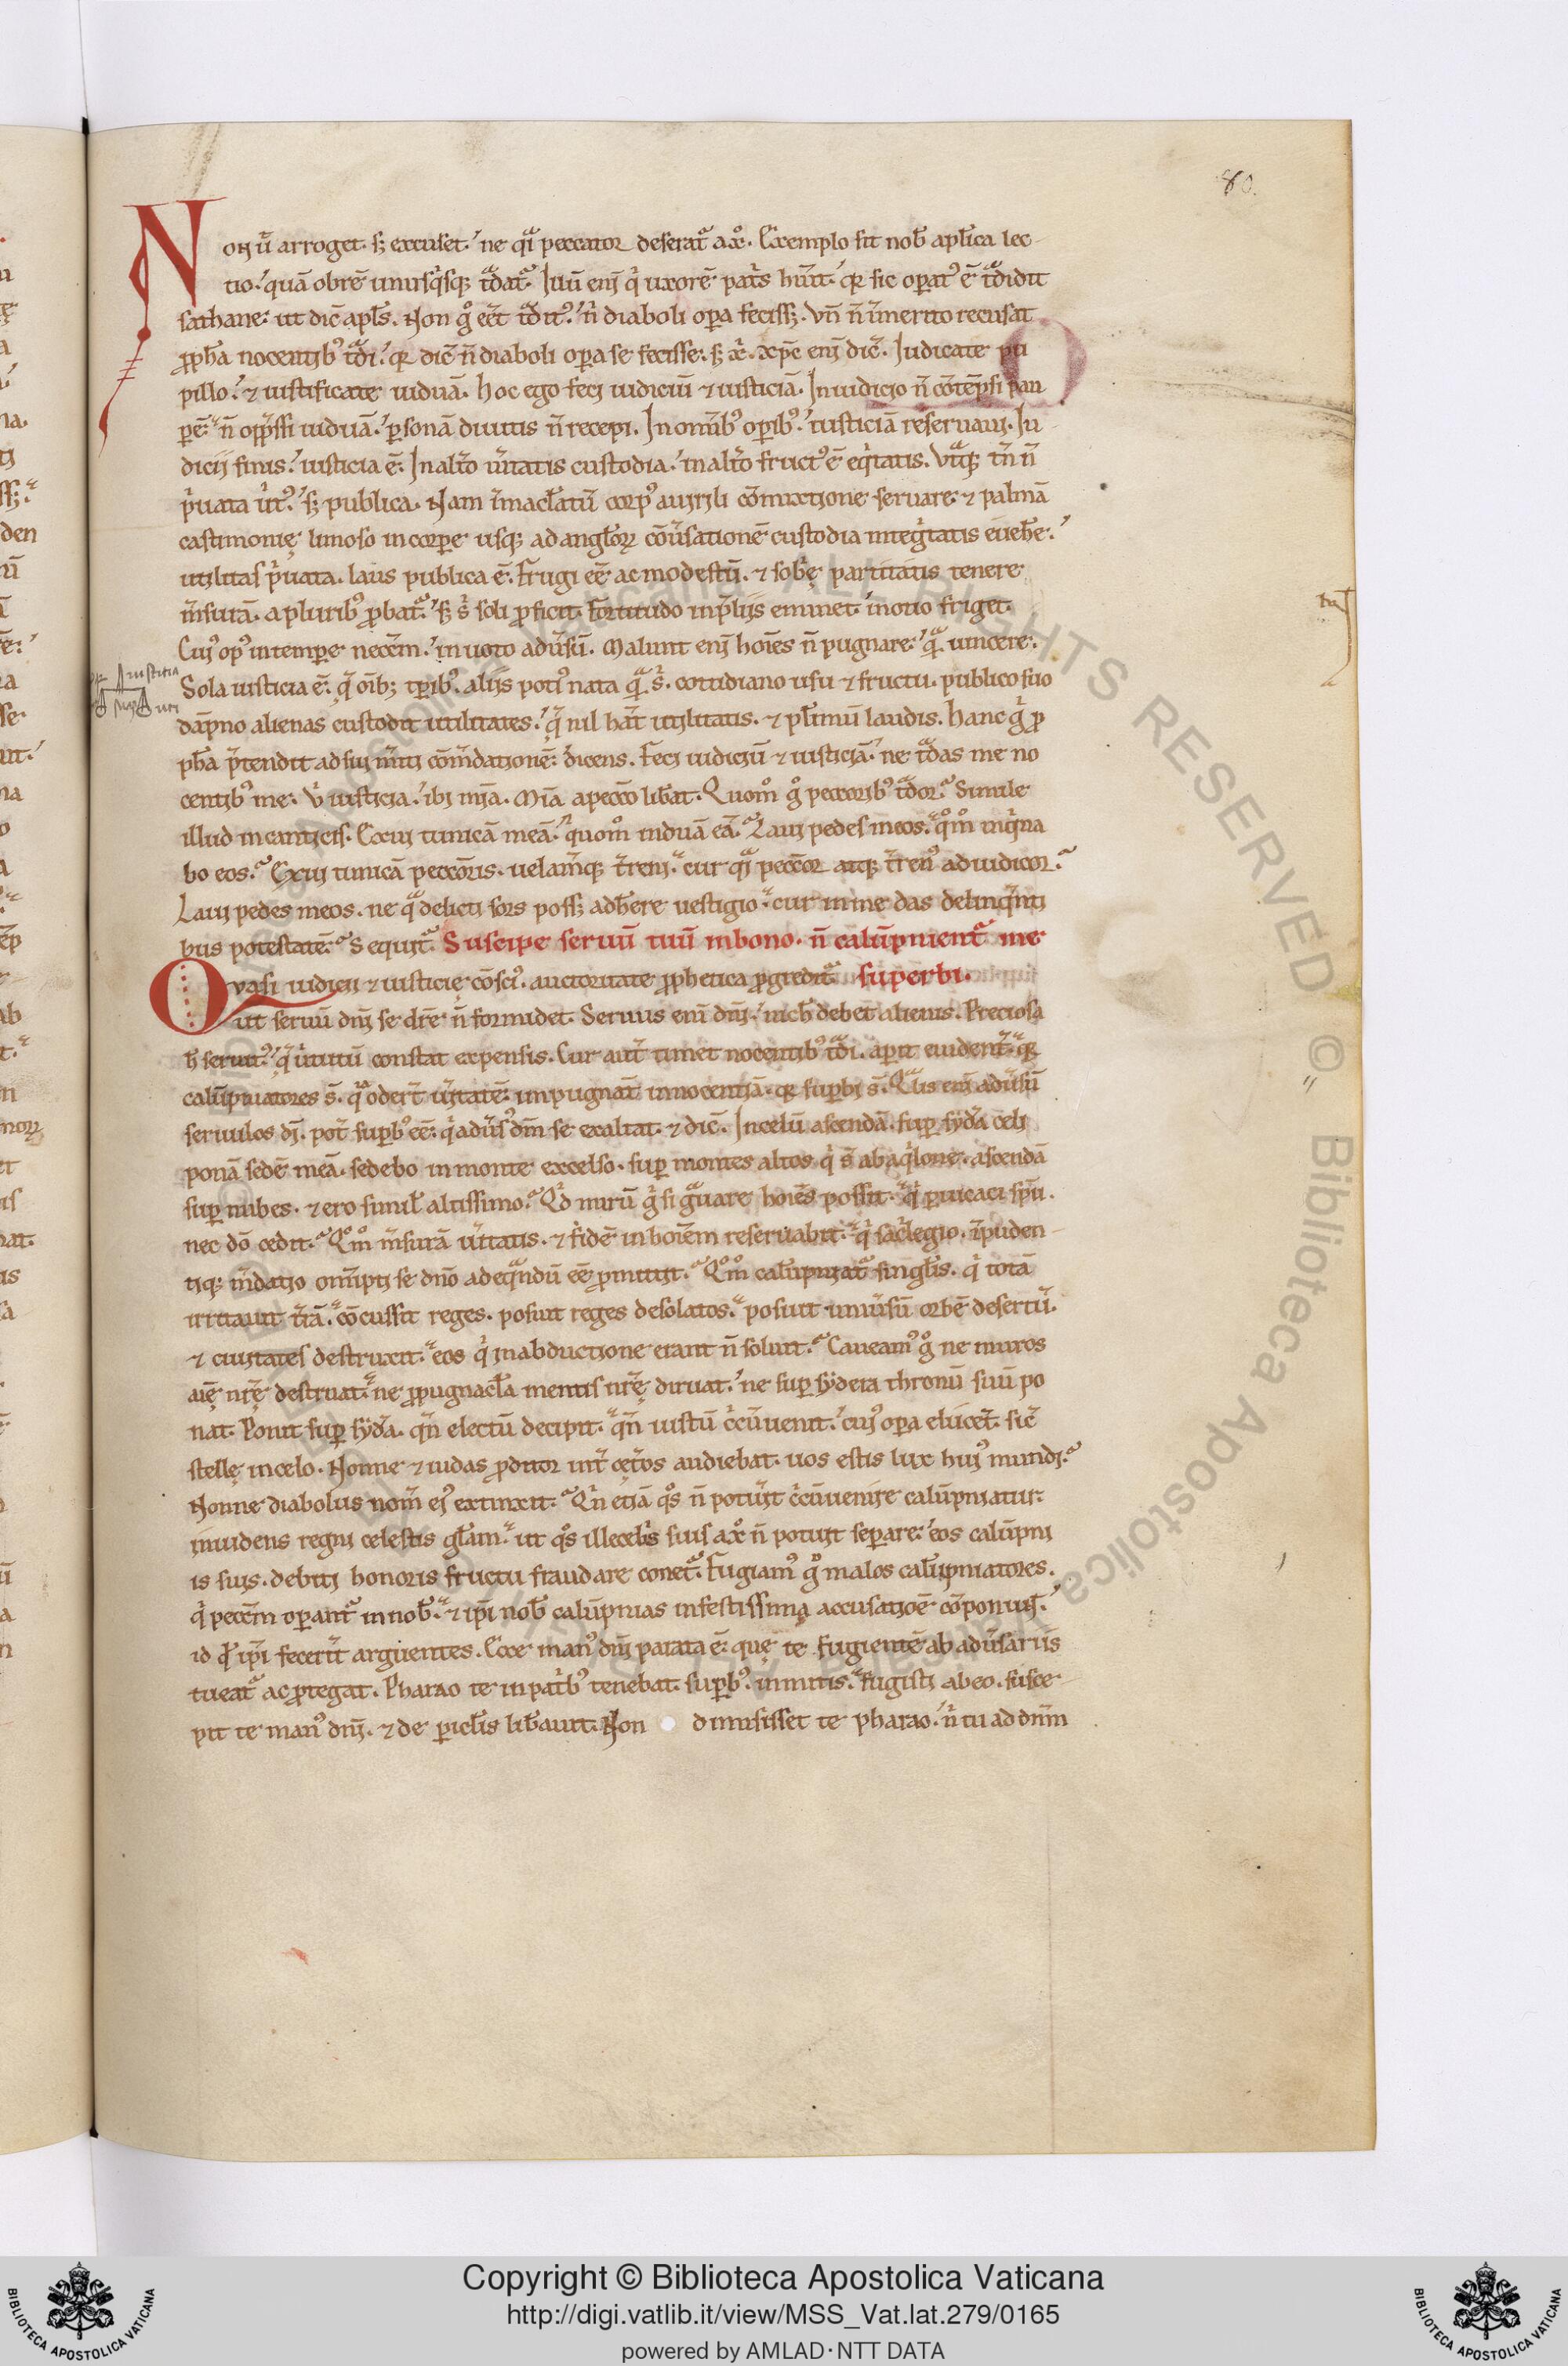 80.
Non ũ arroget. sꝫ excuset. ne qͣi peccator deseratᷣ a xͦ. Exemplo sit nob̄ apl̄ica lec-
tio. quā ob rē unusqͥsqꝫ tͣdatᷣ. Iuū eni qͥ uxorē patͥs hūit. qꝛ sic opatꝰ ē tͣdidit
sathane. ut dic̄ apl̄s. Non gͦ eēt tͣditꝰ. nͥ diaboli opa fecissꝫ. Vñ ñ īmerito recusat
ꝓph̄a nocentibꝰ tͣdi. qꝛ dic̄ ñ diaboli opa se fecisse. sꝫ xͥ. xp̄c eni dic̄. Iudicate pu
pillo. ⁊ iustificate uiduā. hoc ego feci iudiciū ⁊ iusticiā. In iudicio ñ cōtēpsi pau
pē. ñ opp̄ssi uiduā. ꝑsonā diuitis ñ recepi. In omībꝰ opibꝰ. iusticiā reseruaui. Iu-
dicii finis. iusticia ē. In alt̄o ūitatis custodia. in alt̄o fructꝰ ē eqͥtatis. Vtͣqꝫ tñ ñ
pͥuata ūtꝰ. sꝫ publica. Nam īmacl̄atū corpꝰ a uirili cōmixtione seruare. ⁊ palmā
castimonię limoso in corpe usqꝫ ad angl̄oꝝ cōūsationē custodia integͥtatis euehe.
utilitas pͥuata. laus publica ē. Frugi eē ac modestū. ⁊ sobͥę parcitatis tenere
m̄surā. a pluribꝰ ꝓbatᷣ. sꝫ sͥ soli ꝓficit. Fortitudo in p̄liis eminet. in otio friget.
Cuiꝰ opꝰ in tempe necēm. in uoto adūsū. Malunt eni hoīes ñ pugnare. qͣ uincere.
Sola iusticia ē. q̄ oībꝫ tp̄ibꝰ. aliis potiꝰ nata qͣ sͥ. cottidiano usu ⁊ fructu. publico suo
dāpno alienas custodit utilitates. q̄ nil hāt utilitatis. ⁊ pl̄imū laudis. Hanc gͥ ꝓ
ph̄a p̄tendit ad sui m̄iti cōm̄dationē. dicens. Feci iudiciū ⁊ iusticiā. ne tͣdas me no
centibꝰ me. Vͥ iusticia. ibi mīa. Mīa a peccō lib̄at. Quomͦ gͦ peccōribꝰ tͣdorᷣ. Simile
illud in canticis. Exui tunicā meā. quomͦ induā eā. Laui pedes meos. qͦmͦ inqͥna
bo eos. Exui tunicā peccōris. uelam̄qꝫ t̄reni. cur qͣi peccōr atqꝫ t̄renꝰ adiudicor.
Laui pedes meos. ne qͣ delicti sors possꝫ adh̄ere uestigio. cur in me das delinqͣnti
bus potestatē. Sequitᷣ. Suscipe seruū tuū in bono. ñ calūpnientᷣ me
Quasi iudicii ⁊ iusticię cōsciꝰ. auctoritate ꝓphetica ꝓgreditᷣ superbi.
ut seruū dn̄i se dīce ñ formidet. Seruus eni dn̄i. nich̄ debet alienis. Preciosa
h̄ seruitꝰ. q̄ ūtutū constat expensis. Cur aut̄ timet nocentibꝰ tͣdi. apit euident̄. qꝛ
calūpniatores s̄. qͣ odert̄ ūitatē. inpugnāt innocentiā. qꝛ supbi s̄. Qͣlis eni adūsū
seruulos di. pot̄ supbꝰ eē. qͥ adūsꝰ dm̄ se exaltat. ⁊ dic̄. In celū ascendā. sup syda celi
ponā sedē meā. sedebo in monte excelso. sup montes altos qͥ s̄ ab aqͥlone. ascendā
sup nubes. ⁊ ero simil̄ altissimo. Qͥd mirū gͥ si gͣuare hoīes possit. qͥ puicaci sp̄u.
nec dō cedit. Qͦmͦ m̄surā ūitatis. ⁊ fidē in hoīem reseruabit. qͥ sac̄legio. īpuden-
tiqꝫ m̄datio om̄ipti se dn̄o adeqͣndū eē ꝓmittit. Qͦmͦ calūpniatᷣ singl̄is. qͥ totā
irritauit t̄rā. cōcussit reges. posuit reges desolatos. posuit uniūsū orbē desertū.
⁊ ciuitates destruxit. eos qͥ in abductione erant ñ soluit. Caueamꝰ gͦ ne muros
aīę nr̄ę destruat. ne ꝓpugnacl̄a mentis nr̄ę diruat. ne sup sydera thronū suū po
nat. Ponit sup syda. qn̄ electū decipit. qn̄ iustū cͥcūuenit. cuiꝰ opa elucēt. sic̄
stellę in celo. Nonne ⁊ iudas ꝓditor int̄ cęt̄os audiebat. uos estis lux huiꝰ mundi.
Nonne diabolus nom̄ eiꝰ extinxit. Qn̄ etiā qͦs ñ potuit cͥcūuenire calūpniatur.
inuidens regni celestis gl̄am. ut qͦs illecebͥs suis a xͦ ñ potuit separe. eos calūpni
is suis. debiti honoris fructu fraudare conetᷣ. Fugiamꝰ gͦ malos calūpniatores.
qͥ peccm̄ opantᷣ in nob̄. ⁊ ip̄i nob̄ calūpnias infestissima accusatiōe cōponūt.
id qͩ ip̄i fecert̄ arguentes. Ecce manꝰ dn̄i parata ē. quę te fugientē ab adūsariis
tueatᷣ ac ꝓtegat. Pharao te in patͥbꝰ tenebat. supbꝰ. inmitis. fugisti ab eo. susce-
pit te manꝰ dn̄i. ⁊ de picl̄is lib̄auit. Non dimisisset te pharao. nͥ tu ad dn̄m
Copyright © Biblioteca Apostolica Vaticana
http://digi.vatlib.it/view/MSS_Vat.lat.279/0165
powered by AMLAD·NTT DATA
BIBLIOTECA APOSTOLICA VATICANA
BIBLIOTECA APOSTOLICA VATICANA